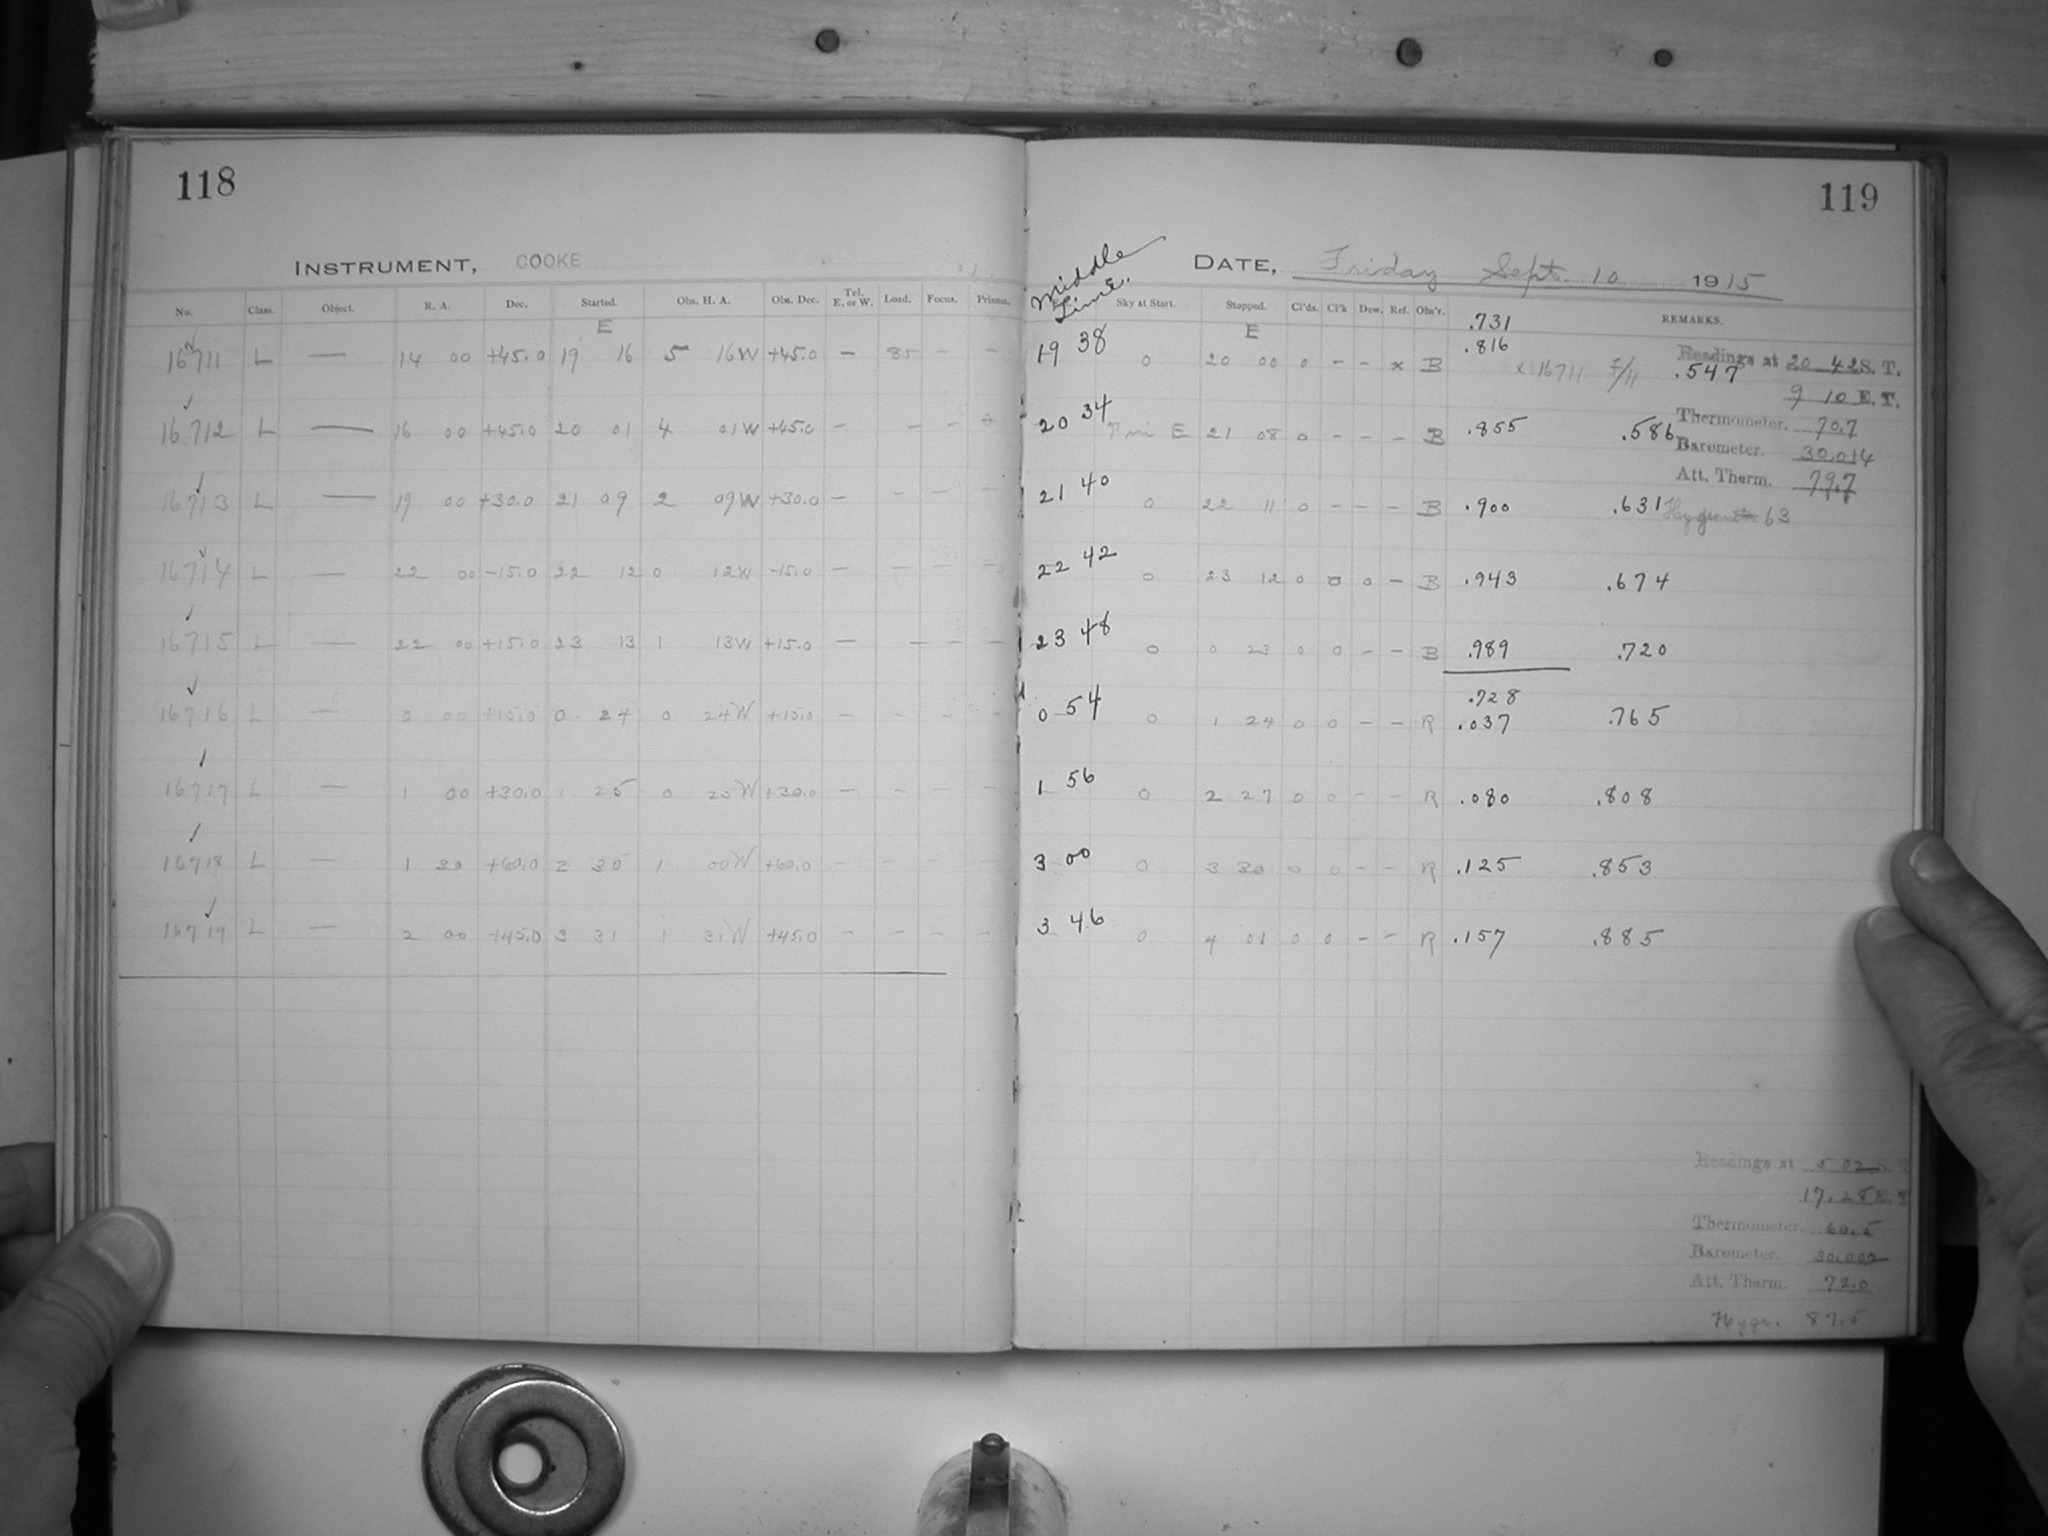 118
INSTRUMENT, COOKE
No. Class. Object. R. A. Dec. Started. Obs. H. A. Obs. Dec. Tel. E. or W. Load. Focus. Prisms.
E
16711 L — 14 00 +45.0 19 16 5 16W +45.0 — 85 — —
16712 L — 16 00 +45.0 20 01 4 01W +45.0 — — —
16713 L — 19 00 +30.0 21 09 2 09W +30.0 — — — —
16714 L — 22 00 -15.0 22 12 0 12W -15.0 — — — —
16715 L — 22 00 +15.0 23 13 1 13W +15.0 — — — —
16716 L — 0 00 +15.0 0 24 0 24W +15.0 — — — —
16717 L — 1 00 +30.0 1 25 0 25W +30.0 — — — —
16718 L — 1 30 +60.0 2 30 1 00W +60.0 — — — —
16719 L — 2 00 +45.0 3 31 1 31W +45.0 — — — —
119
Middle Time.
DATE, Friday Sept. 10 1915
Sky at Start. Stopped. Cl'ds. Cl'k Dew. Ref. Obs'r. REMARKS.
E .731
19 38 0 20 00 0 - - x B .816 x 16711 F/11 .547
20 34 E 21 08 0 - - - B .855 .586
21 40 0 22 11 0 - - - B .900 .631
22 42 0 23 12 0 0 0 - B .943 .674
23 48 0 0 23 0 0 - - B .989 .720
.728
0 54 0 1 24 0 0 - - R .037 .765
1 56 0 2 27 0 0 - - R .080 .808
3 00 0 3 30 0 0 - - R .125 .853
3 46 0 4 01 0 0 - - R .157 .885
Readings at 20 42 S. T.
9 10 E. T.
Thermometer. 70.7
Barometer. 30.014
Att. Therm. 79.7
63
Readings at 5 02 S. T
17.28 E. T
Thermometer. 60.5
Barometer. 30.002
Att. Therm. 72.0
Hygr. 87.5